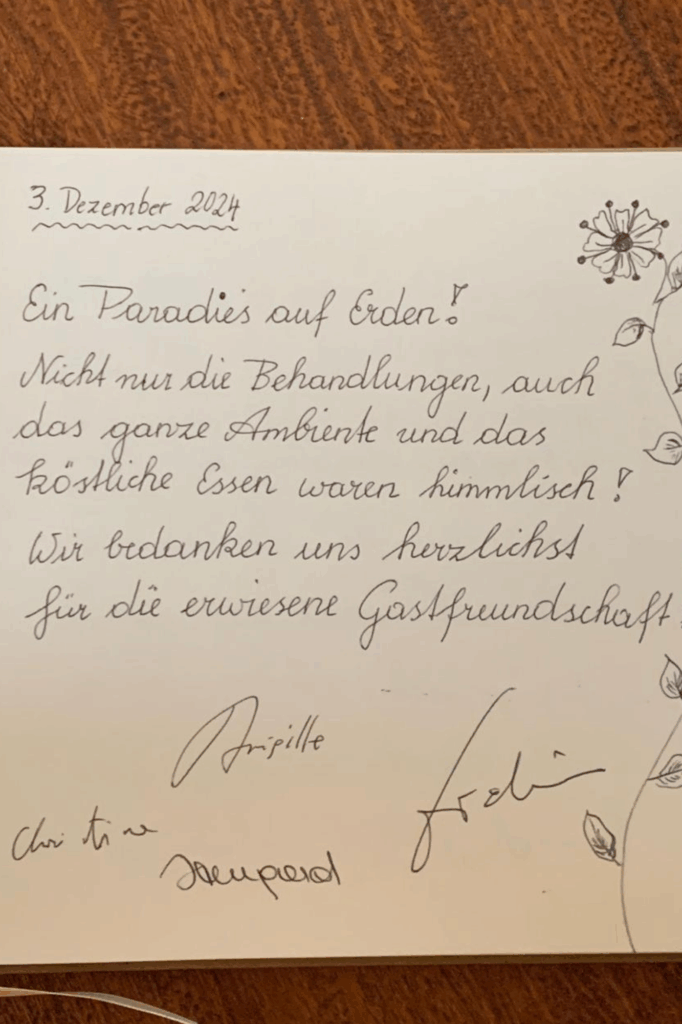 3. Dezember 2024
Ein Paradies auf Erden!
Nicht nur die Behandlungen, auch
das ganze Ambiente und das
köstliche Essen waren himmlisch!
Wir bedanken uns herzlichst
für die erwiesene Gastfreundschaft.
Christine